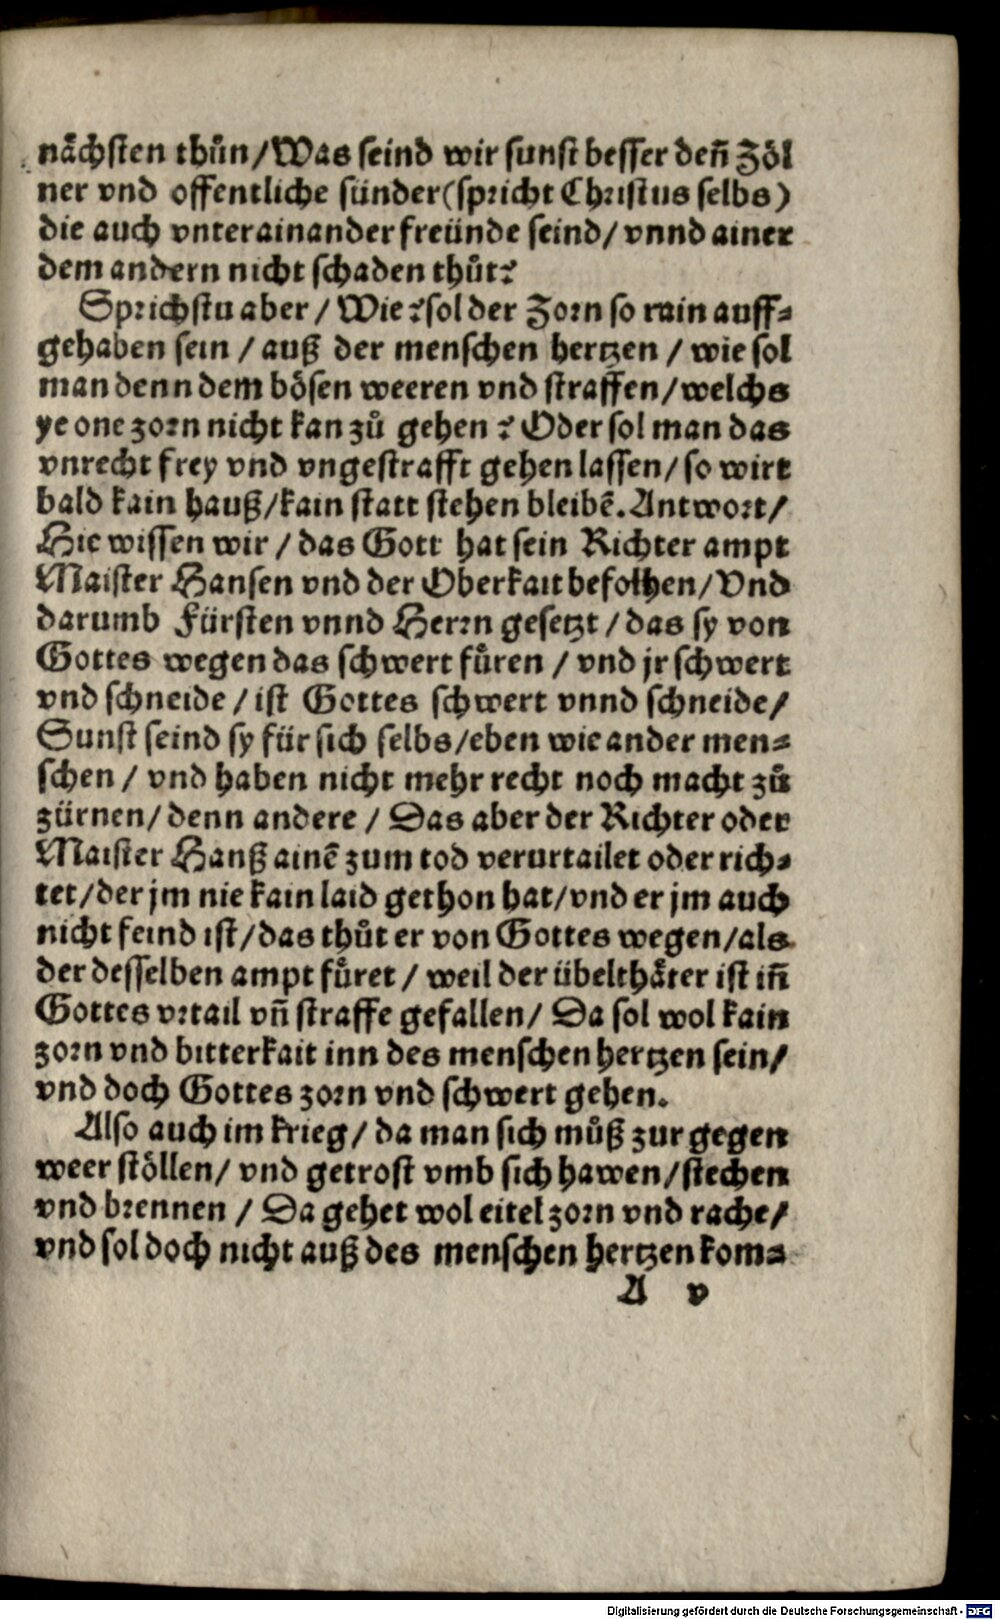 nåchsten thůn / Was seind wir sunst besser deñ Zöl
ner vnd offentliche sünder (spricht Christus selbs)
die auch vnter ainander freünde seind / vnnd ainer
dem andern nicht schaden thůt?
Sprichstu aber / Wie? sol der Zorn so rain auff-
gehaben sein / auß der menschen hertzen / wie sol
man denn dem bösen weeren vnd straffen / welchs
ye one zorn nicht kan zů gehen? Oder sol man das
vnrecht frey vnd vngestrafft gehen lassen / so wirt
bald kain hauß / kain statt stehen bleibē. Antwort /
Hie wissen wir / das Gott hat sein Richter ampt
Maister Hansen vnd der Oberkait befolhen / Vnd
darumb Fürsten vnnd Herrn gesetzt / das sy von
Gottes wegen das schwert fůren / vnd jr schwert
vnd schneide / ist Gottes schwert vnnd schneide /
Sunst seind sy für sich selbs / eben wie ander men-
schen / vnd haben nicht mehr recht noch macht zů
zürnen / denn andere / Das aber der Richter oder
Maister Hanß ainē zum tod verurtailet oder rich-
tet / der jm nie kain laid gethon hat / vnd er jm auch
nicht feind ist / das thůt er von Gottes wegen / als
der desselben ampt fůret / weil der übelthåter ist iñ
Gottes vrtail vñ straffe gefallen / Da sol wol kain
zorn vnd bitterkait inn des menschen hertzen sein /
vnd doch Gottes zorn vnd schwert gehen.
Also auch im krieg / da man sich můß zur gegen
weer stöllen / vnd getrost vmb sich hawen / stechen
vnd brennen / Da gehet wol eitel zorn vnd rache /
vnd sol doch nicht auß des menschen hertzen kom-
A v
Digitalisierung gefördert durch die Deutsche Forschungsgemeinschaft - DFG